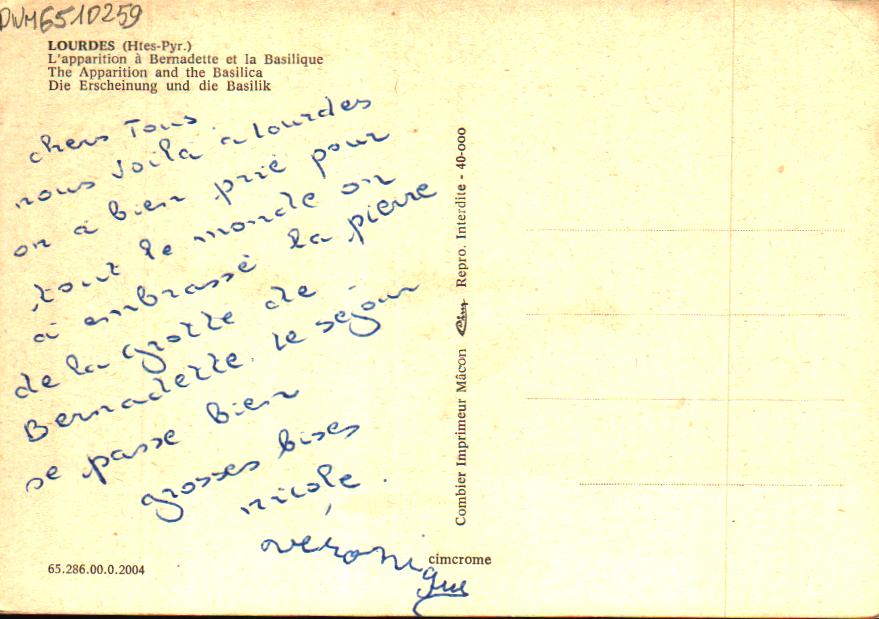 DVM6510259
LOURDES (Htes-Pyr.)
L'apparition à Bernadette et la Basilique
The Apparition and the Basilica
Die Erscheinung und die Basilik
chers Tous
nous voilà a lourdes
on a bien prié pour
tout le monde on
a embrassé la pierre
de la grotte de
Bernadette. le séjour
se passe bien
grosses bises
nicole.
véronique
Combier Imprimeur Mâcon Cim Repro. Interdite - 40-000
65.286.00.0.2004
cimcrome